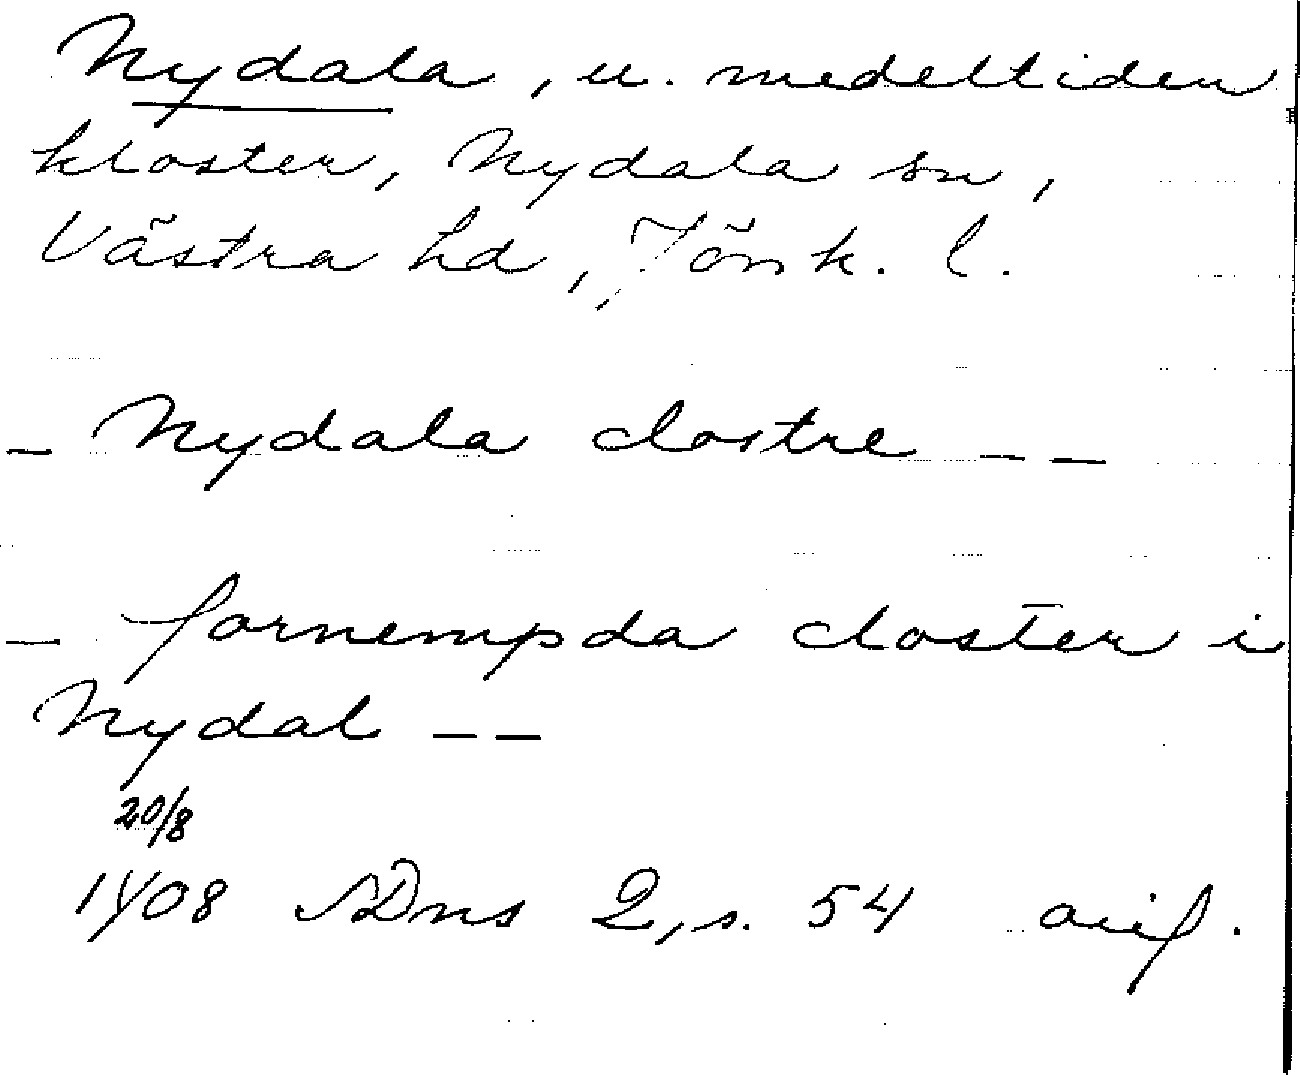 Nydala, u. medeltiden
kloster, Nydala sn,
Västra hd, Jönk. l.
– Nydala clostre – –
– fornempda closter i
Nydal – –
20/8
1408 SDns 2, s. 54